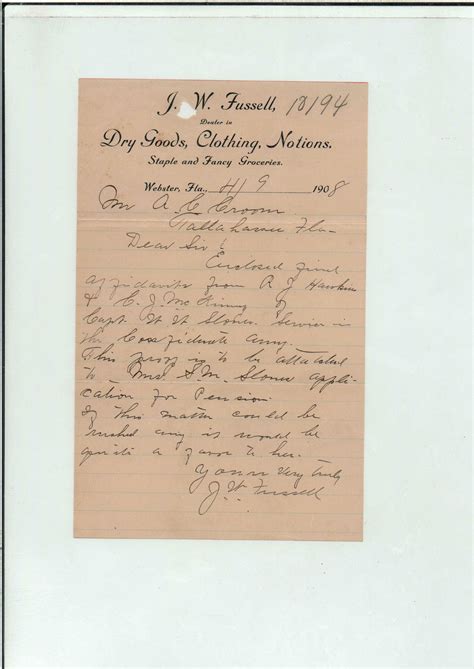 J. W. Fussell, 18194
Dealer in
Dry Goods, Clothing, Notions,
Staple and Fancy Groceries.
Webster, Fla., 4/9 1908
Mr A. C Croom
Tallahassee Fla-
Dear Sir:
Enclosed find
affidavits from R J Hawkins
& C. J. McKinny of
Capt Stone. Service in
the Confederate army.
This proof is to be attached
to Mrs S. M. Stone appli-
cation for Pension
If this matter could be
rushed any it would be
quite a favor to her.
Yours Very truly
J. W. Fussell